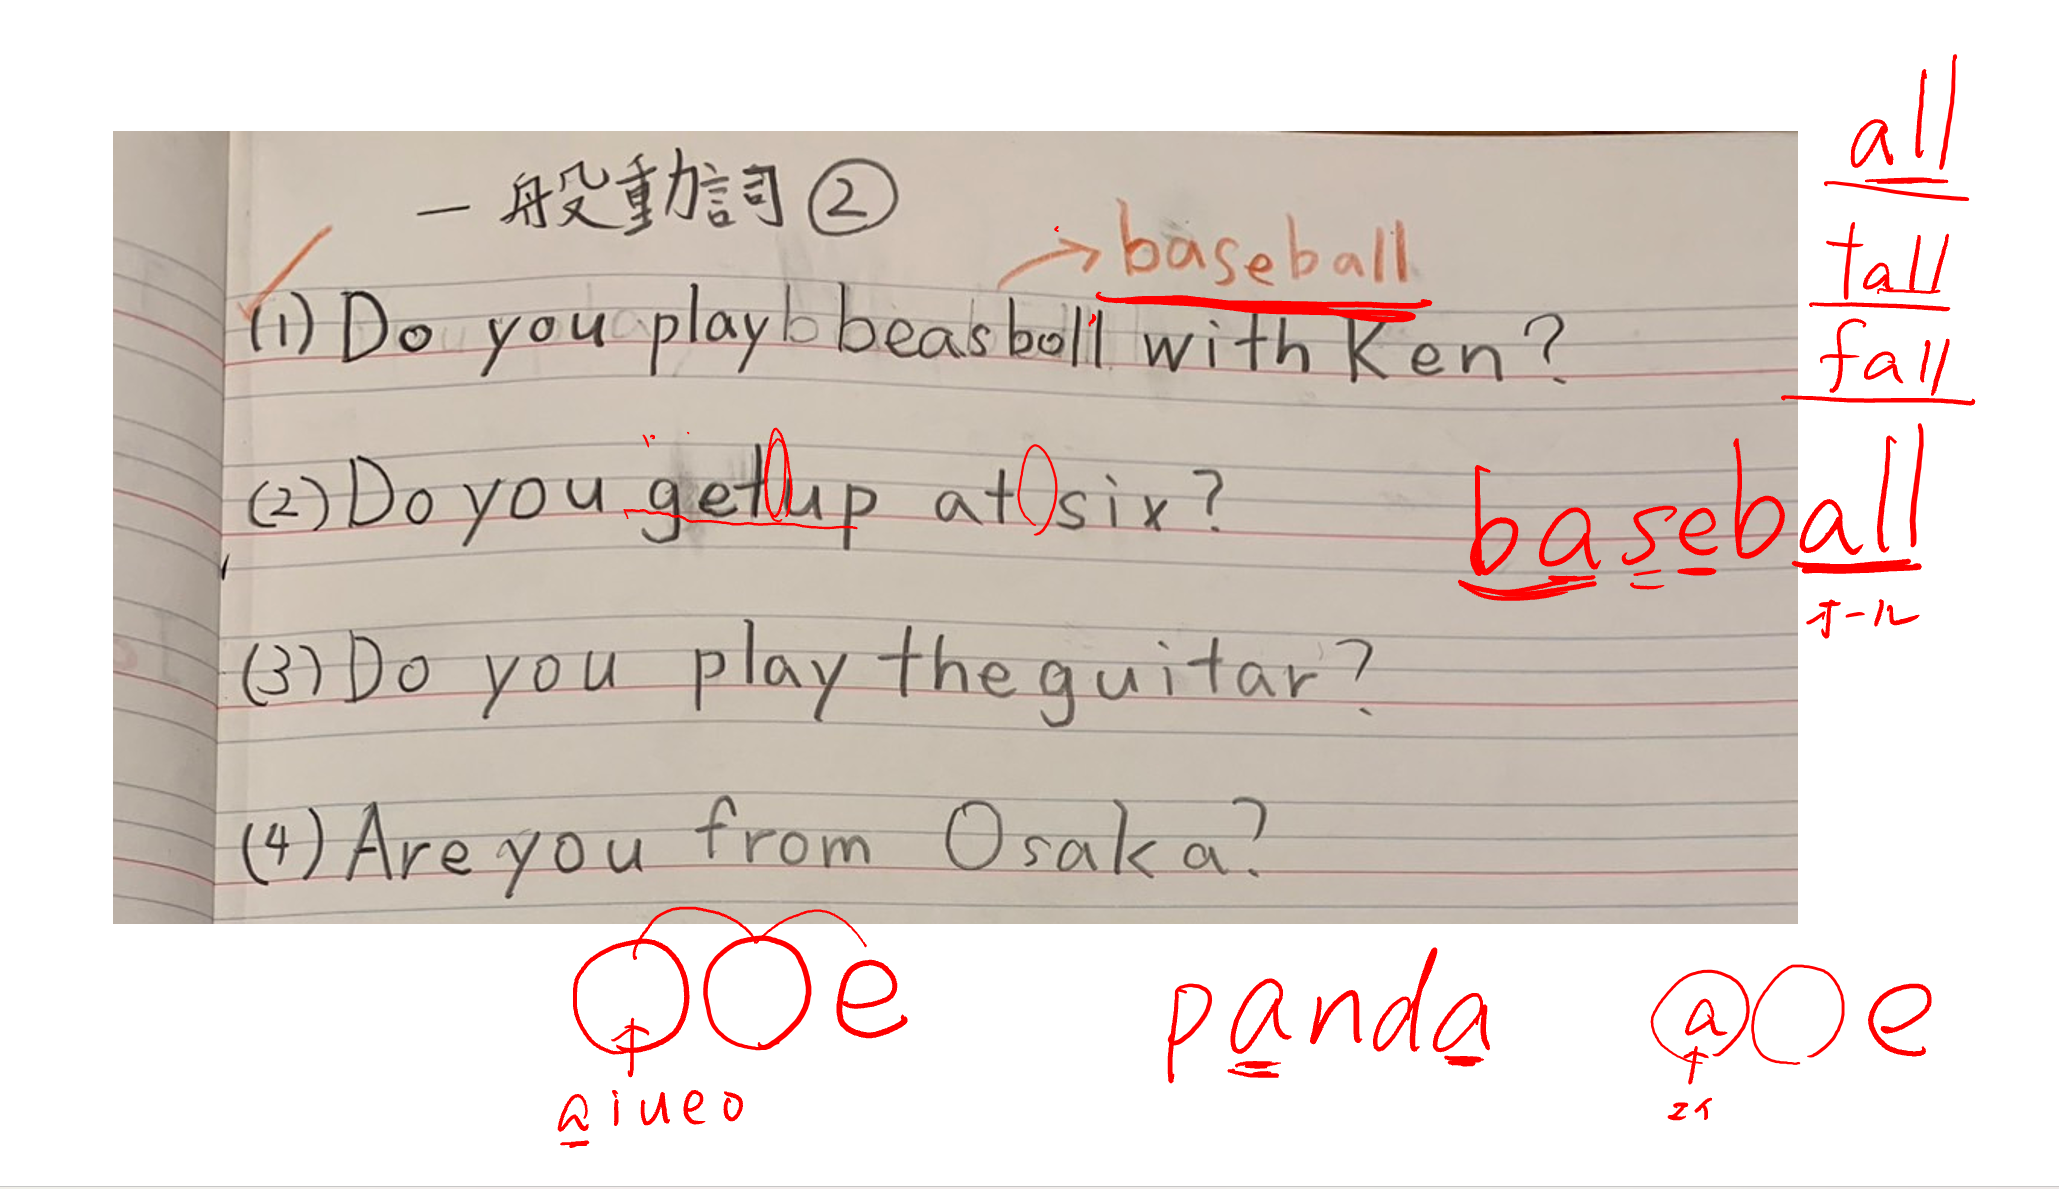 一般動詞②
baseball
(1) Do you play b beasboll with Ken?
(2) Do you get up at six?
(3) Do you play the guitar?
(4) Are you from Osaka?
all
tall
fall
baseball
オール
e
aiueo
panda
a e
エイ